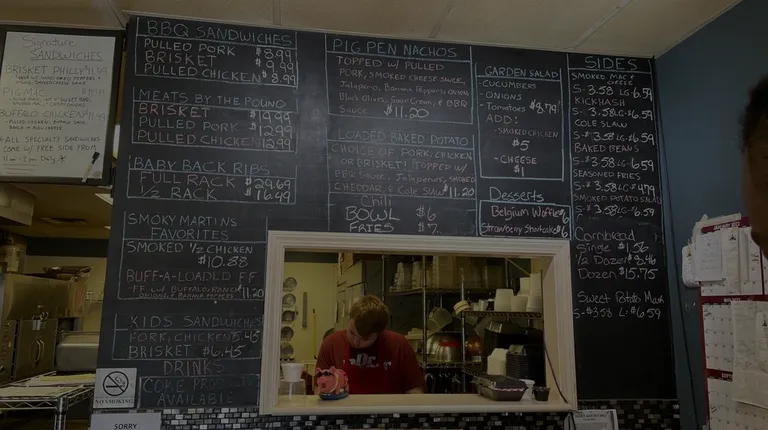 Signature
SANDWICHES
BRISKET PHILLY $11.99
PIG MAC
BUFFALO CHICKEN $11.99
*ALL SPECIALTY SANDWICHES
COME W/ FREE SIDE FROM
11am - 2pm Daily *
BBQ SANDWICHES
PULLED PORK $8.99
BRISKET $9.99
PULLED CHICKEN $8.99
MEATS BY THE POUND
BRISKET $19.99
PULLED PORK $12.99
PULLED CHICKEN $12.99
BABY BACK RIBS
FULL RACK $29.69
1/2 RACK $16.49
SMOKY MARTINS
FAVORITES
SMOKED 1/2 CHICKEN
$10.88
BUFF-A-LOADED FF
FF W/ BUFFALO RANCH
ONIONS & BANANA PEPPERS $11.20
KIDS SANDWICHES
PORK, CHICKEN 5.45
BRISKET $6.45
DRINKS
COKE PRODUCTS
AVAILABLE
PIG PEN NACHOS
TOPPED W/ PULLED
PORK, SMOKED CHEESE SAUCE,
Jalapeno, Banana Peppers, Onions
Black Olives, Sour Cream, & BBQ
Sauce $11.20
LOADED BAKED POTATO
CHOICE OF PORK, CHICKEN
OR BRISKET! TOPPED W/
BBQ Sauce, Jalapenos, SMOKED
CHEDDAR, & Cole Slaw $11.20
Chili
BOWL $6
FRIES $7
GARDEN SALAD
-CUCUMBERS
-ONIONS
-Tomatoes $8.79
ADD:
-SMOKED CHICKEN
$5
-CHEESE
$1
Desserts
Belgium Waffle $6
Strawberry Shortcake $6
SIDES
SMOKED MAC &
CHEESE
S-3.58 LG-6.59
KICKHASH
S-$3.58 LG-6.59
COLE SLAW
S-$3.58 LG-6.59
BAKED BEANS
S-3.58 LG-6.59
SEASONED FRIES
S-$3.58 LG-$4.79
SMOKED POTATO SALAD
S-$3.58 LG-6.59
Cornbread
Single $1.56
1/2 Dozen $8.46
Dozen $15.75
Sweet Potato Mash
S-$3.58 L-$6.59
NO SMOKING
SORRY